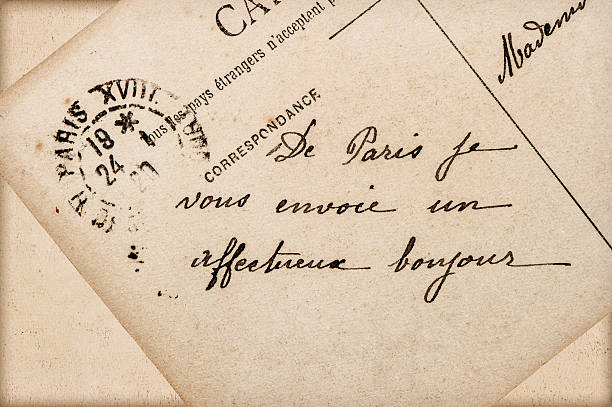 CA
Tous les pays étrangers n'acceptent p
CORRESPONDANCE
PARIS XVIII
19 *
24
20
Madem
De Paris je
vous envoie un
affectueux bonjour